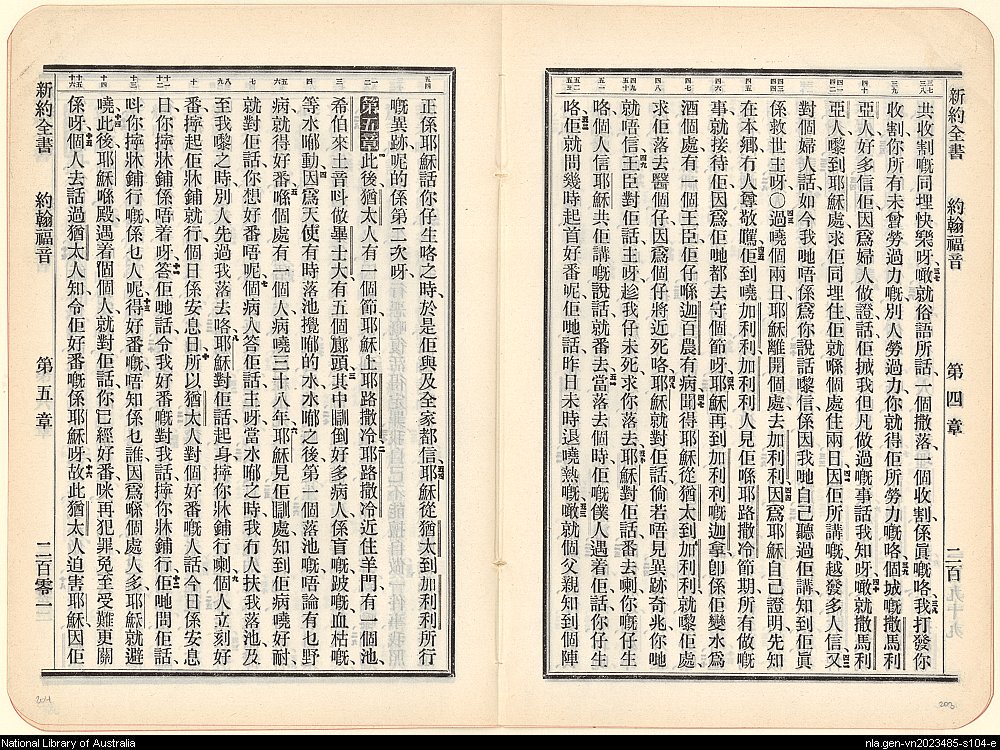 新約全書 約翰福音 第四章
共收割嘅同埋快樂呀噉就俗語所話一個撒落一個收割係眞嘅咯我打發你
收割你所有未曾勞過力嘅別人勞過力你就得佢所勞力嘅咯個城嘅撒馬利
亞人好多信佢因爲婦人做證話佢搣我但凡做過嘅事話我知呀噉就撒馬利
亞人嚟到耶穌處求佢同埋住佢就喺個處住兩日因佢所講嘅越發多人信又
對個婦人話如今我哋唔係爲你說話嚟信係因我哋自己聽過佢講知到佢眞
係救世主呀〇過嘵個兩日耶穌離開個處去加利利因爲耶穌自己證明先知
在本鄉冇人尊敬嘅佢到嘵加利利加利利人見佢喺耶路撒冷節期所有做嘅
事就接待佢因爲佢哋都去守個節呀耶穌再到加利利嘅迦拿卽係佢變水爲
酒個處有一個王臣佢仔喺迦百農有病聞得耶穌從猶太到加利利就嚟佢處
求佢落去醫個仔因爲個仔將近死咯耶穌就對佢話倘若唔見異跡奇兆你哋
就唔信王臣對佢話主呀趁我仔未死求你落去耶穌對佢話番去喇你嘅仔生
咯個人信耶穌共佢講嘅說話就番去當落去個時佢嘅僕人遇着佢話你仔生
咯佢就問幾時起首好番呢佢哋話昨日未時退嘵熱嘅噉就個父親知到個陣
正係耶穌話你仔生咯之時於是佢與及全家都信耶穌從猶太到加利利所行
嘅異跡呢的係第二次呀
第五章此後猶太人有一個節耶穌上耶路撒冷耶路撒冷近住羊門有一個池
希伯來土音叫做畢士大有五個廊頭其中瞓倒好多病人係盲嘅跛嘅血枯嘅
等水嘟動因爲天使有時落池攪嘟的水水嘟之後第一個落池嘅唔論有乜野
病就得好番喺個處有一個人病嘵三十八年耶穌見佢瞓處知到佢病嘵好耐
就對佢話你想好番唔呢個病人答佢話主呀當水嘟之時我冇人扶我落池及
至我嚟之時別人先過我落去咯耶穌對佢話起身擰你牀鋪行喇個人立刻好
番擰起佢牀鋪就行個日係安息日所以猶太人對個好番嘅人話今日係安息
日你擰牀鋪係唔着呀答佢哋話令我好番嘅對我話擰你牀鋪行佢哋問佢話
叫你擰牀鋪行嘅係乜人呢得好番嘅唔知係乜誰因爲喺個處人多耶穌就避
嘵此後耶穌喺殿遇着個個人就對佢話你已經好番咪再犯罪免至受難更關
係呀個人去話過猶太人知令佢好番嘅係耶穌呀故此猶太人迫害耶穌因佢
新約全書 約翰福音 第五章 二百零一
203
204
National Library of Australia
nla.gen-vn2023485-s104-e